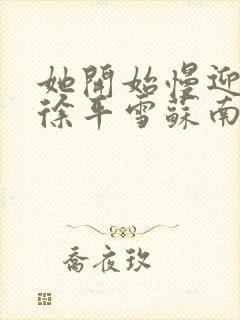 她開始慢迎
徐平雪蘇南
喬夜玖